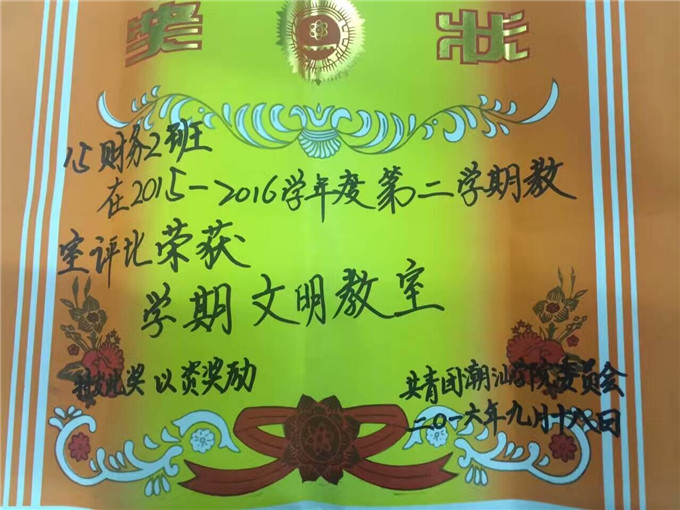 奖 状
15财务2班
在2015-2016学年度第二学期教
室评比荣获
学期文明教室
特发此奖 以资奖励
共青团潮汕学院委员会
二〇一六年九月十八日